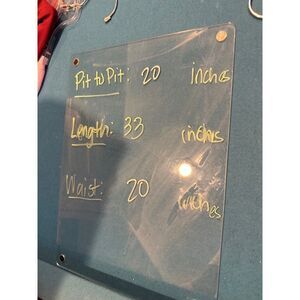 Pit to Pit: 20 inches
Length: 33 inches
Waist: 20 inches